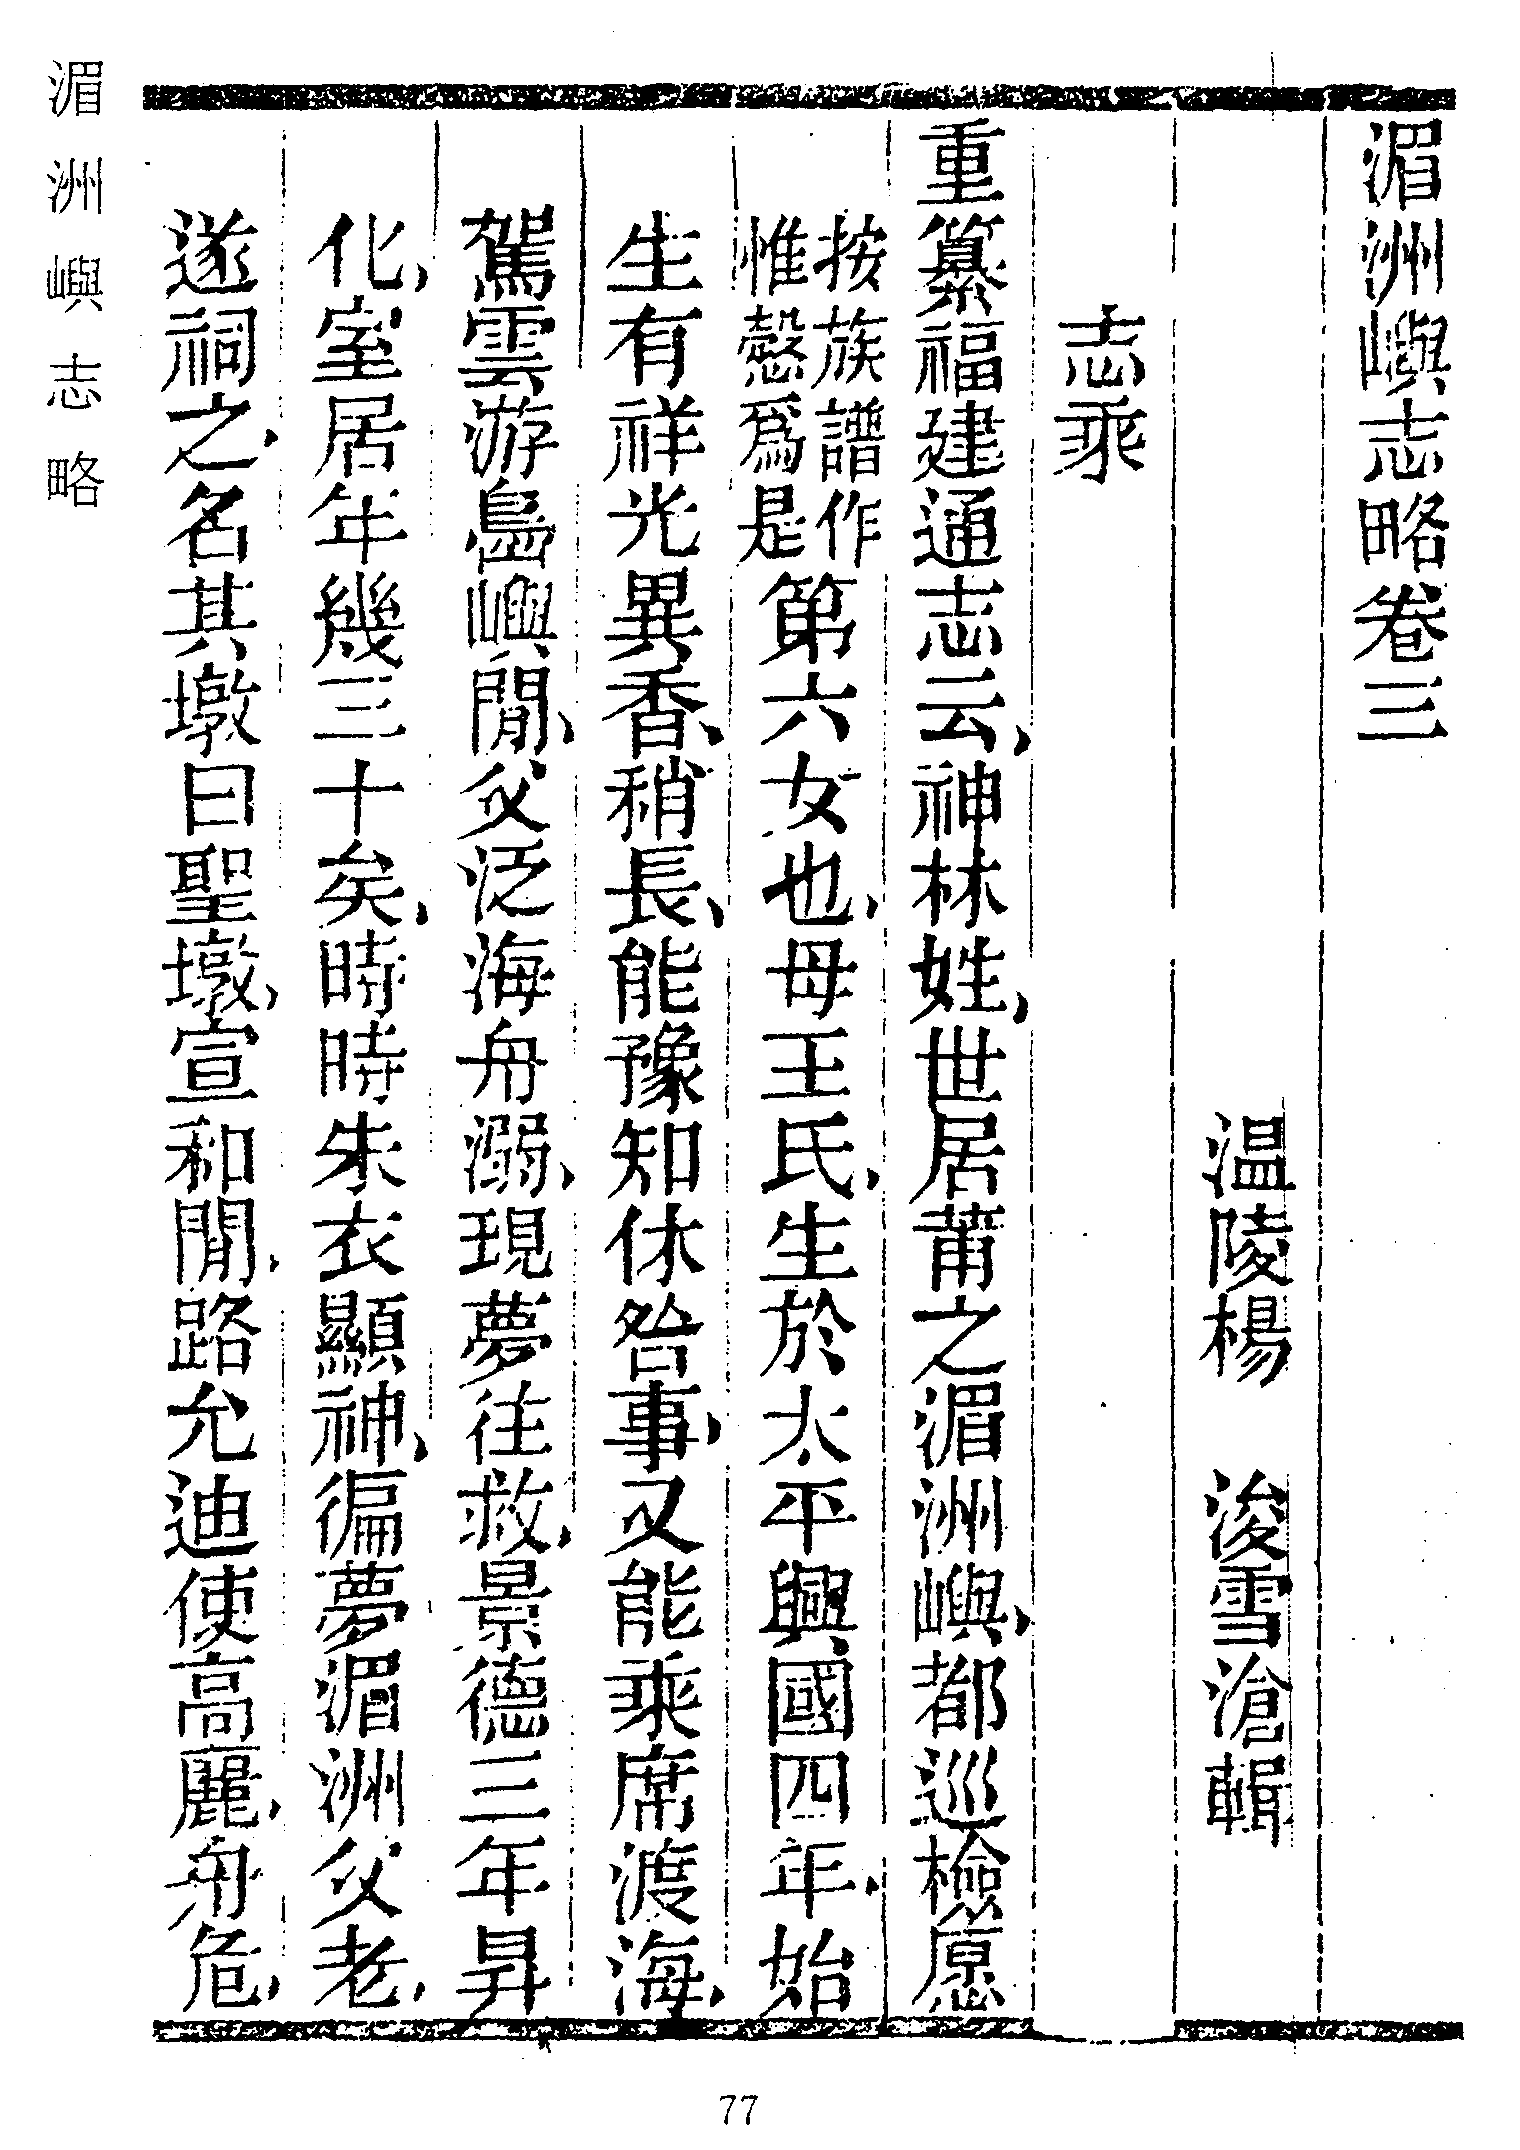 湄洲嶼志略
湄洲嶼志略卷三
温陵楊　浚雪滄輯
志乘
重纂福建通志云、神林姓、世居莆之湄洲嶼、都巡檢愿
按族譜作
惟慤爲是
第六女也、母王氏、生於太平興國四年、始
生有祥光異香、稍長、能豫知休咎事、又能乘席渡海、
駕雲游島嶼閒、父泛海舟溺、現夢往救、景德三年昇
化、室居年幾三十矣、時時朱衣顯神、徧夢湄洲父老、
遂祠之、名其墩曰聖墩、宣和閒、路允迪使高麗、舟危、
77